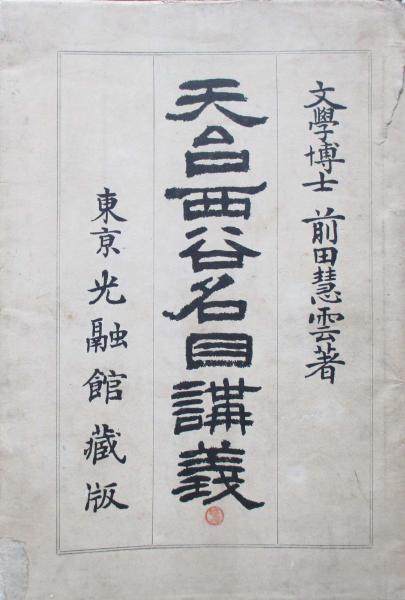 文學博士 前田慧雲著
天台西谷名目講義
東京光融館藏版